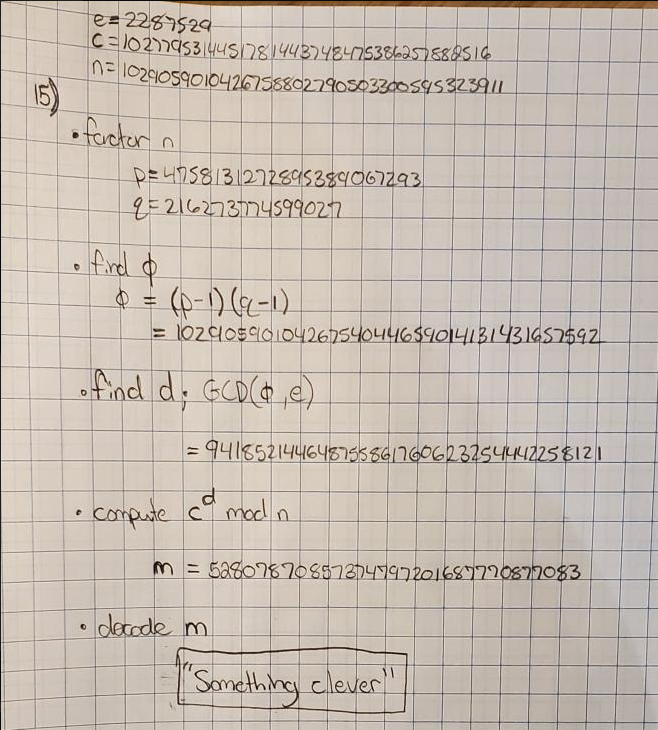 e=2287529
C=1027795314451781443748475386257888516
n=1029059010426758802790503300595323911
15)
• factor n
p=4758131272895389067293
q=216273774599027
• find ϕ
ϕ = (p-1)(q-1)
= 1029059010426754044659014131431657592
• find d; GCD(ϕ,e)
=941852144648755861760623254442258121
• compute c^d mod n
m = 52807870857374797201687770877083
• decode m
"Something clever"